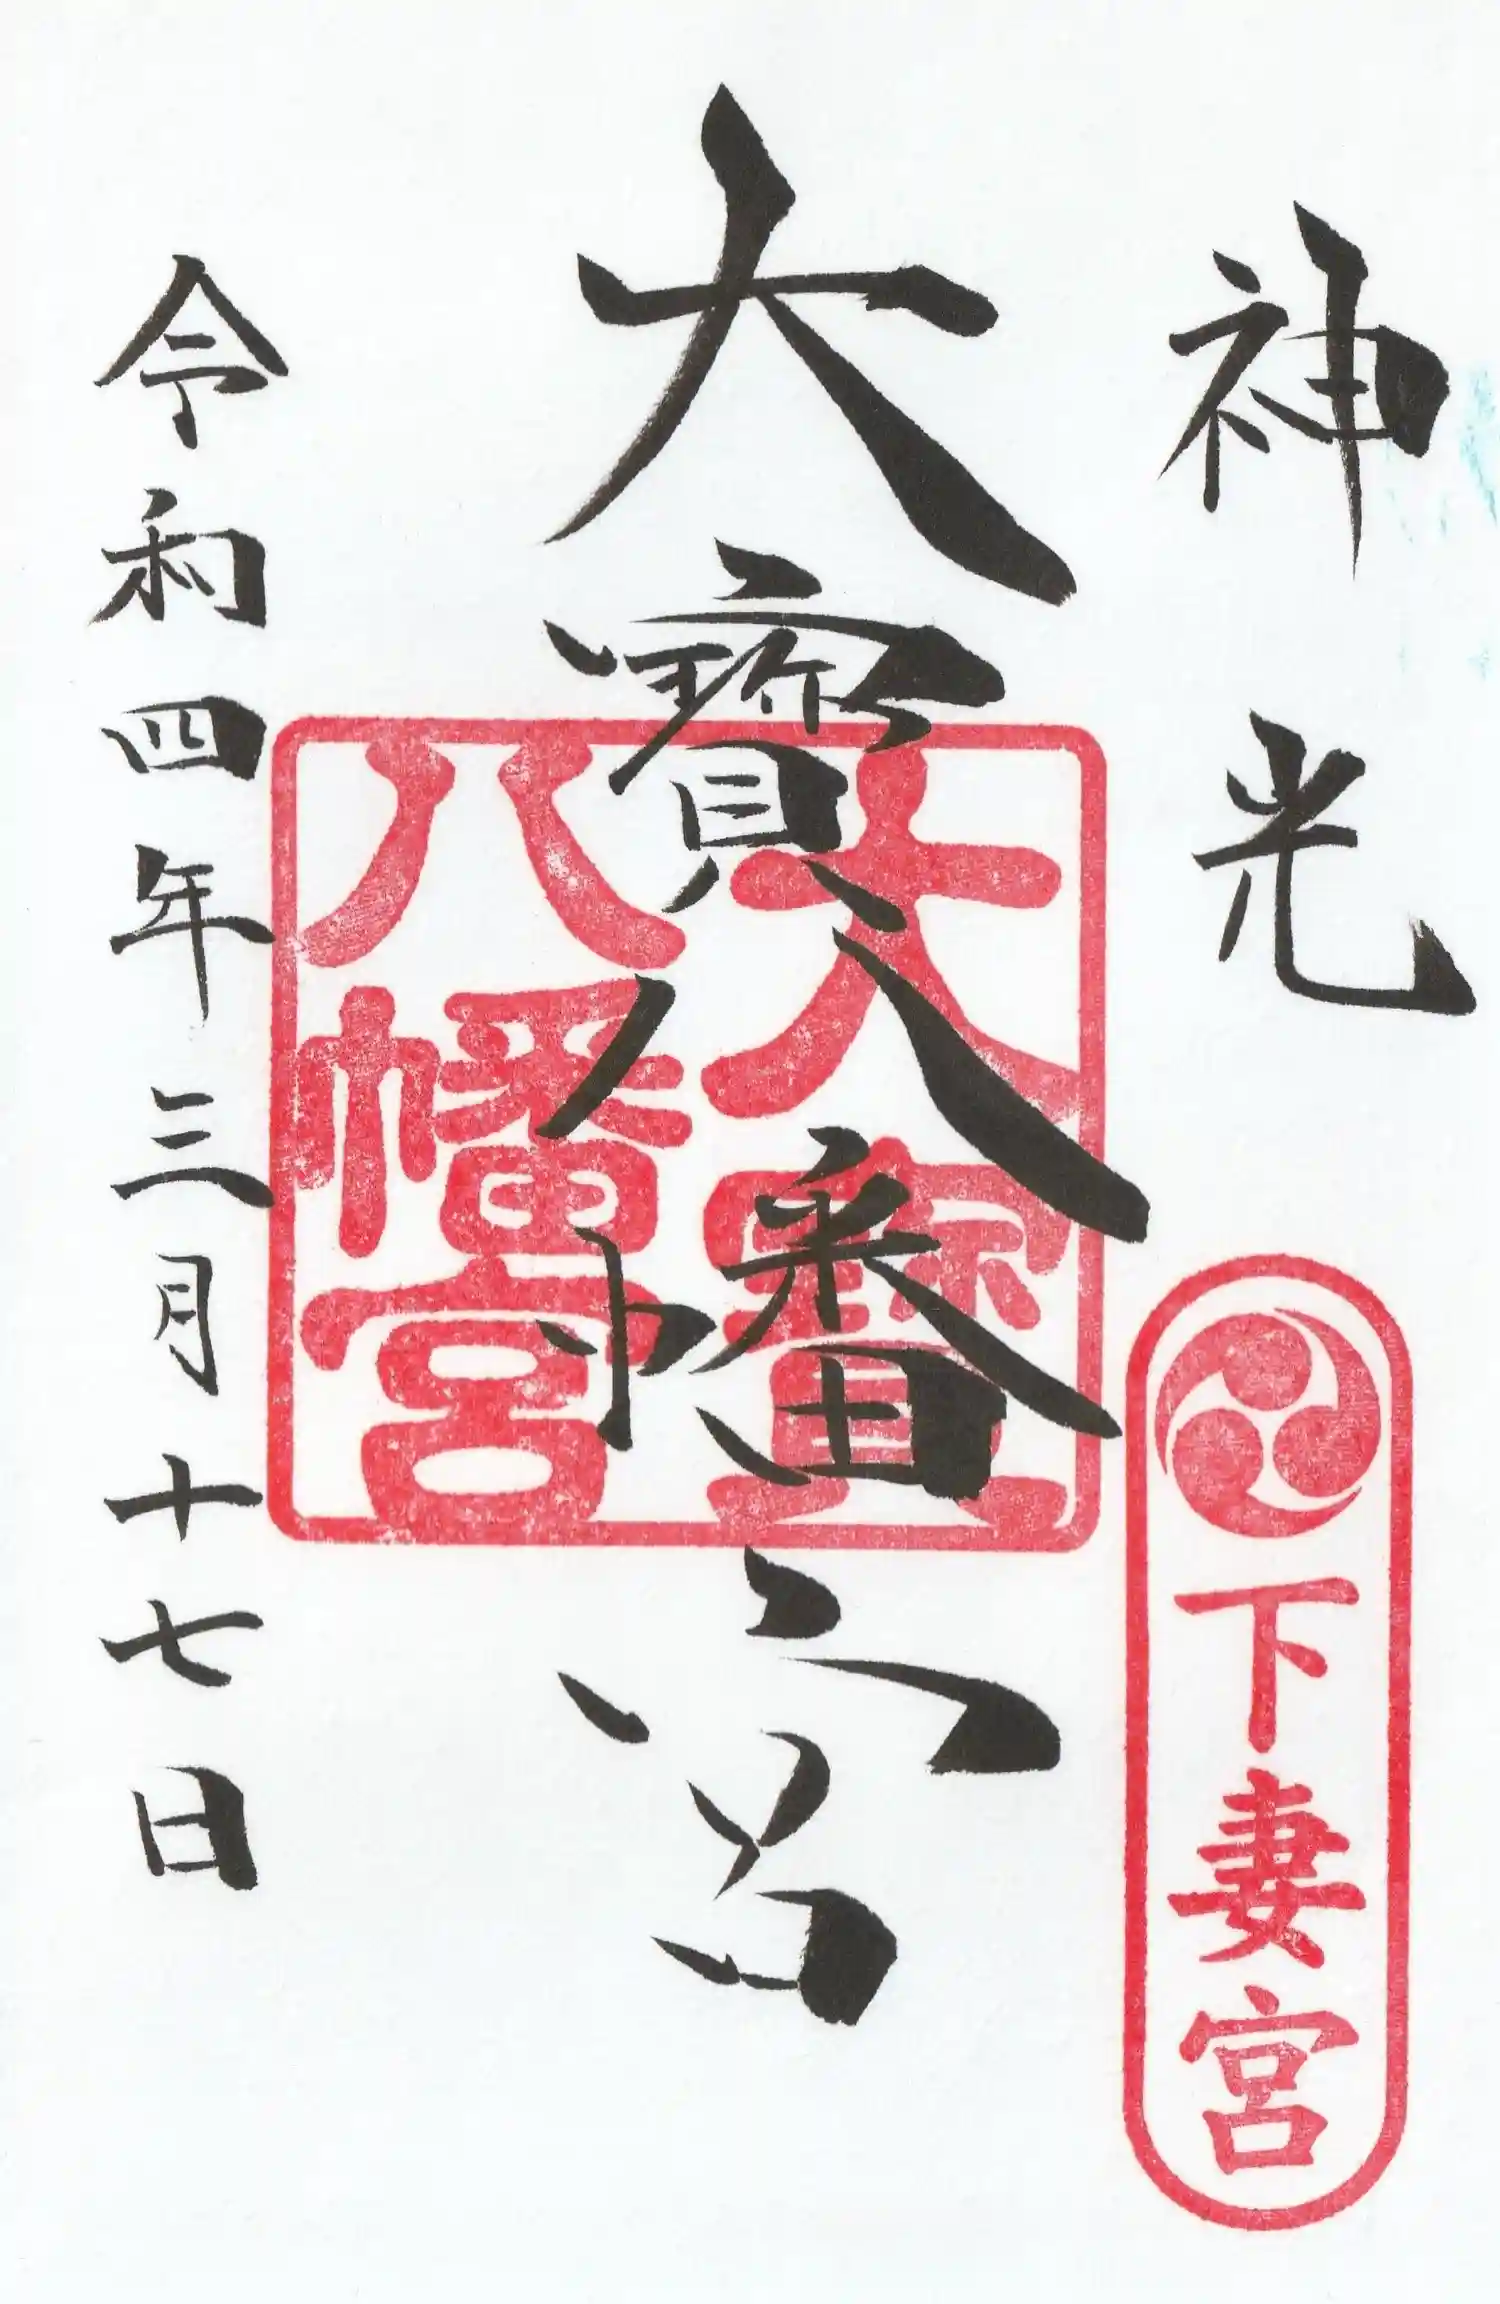 神光
下妻宮
大寶八幡宮
大寶
八幡宮
令和四年三月十七日